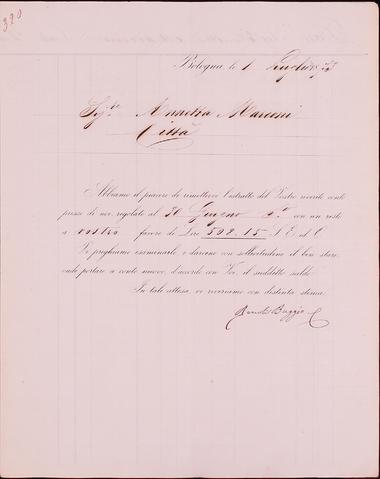 390
Bologna li 1 Luglio 1878
Sig.ra Annetta Marconi
Città
Abbiamo il piacere di rimettervi l'estratto del Vostro recente conto
presso di noi regolato al 30 Giugno p.to con un resto
a vostro favore di Lire 502.15 S. E. ed O.
Vi preghiamo esaminarlo e darcene con sollecitudine il ben stare,
onde portare a conto nuovo, d'accordo con Voi il suddetto saldo.
In tale attesa, vi riveriamo con distinta stima.
Baggio